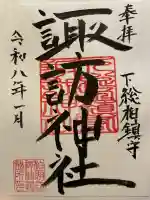 奉拝
下総相鎮守
諏訪神社
令和八年一月